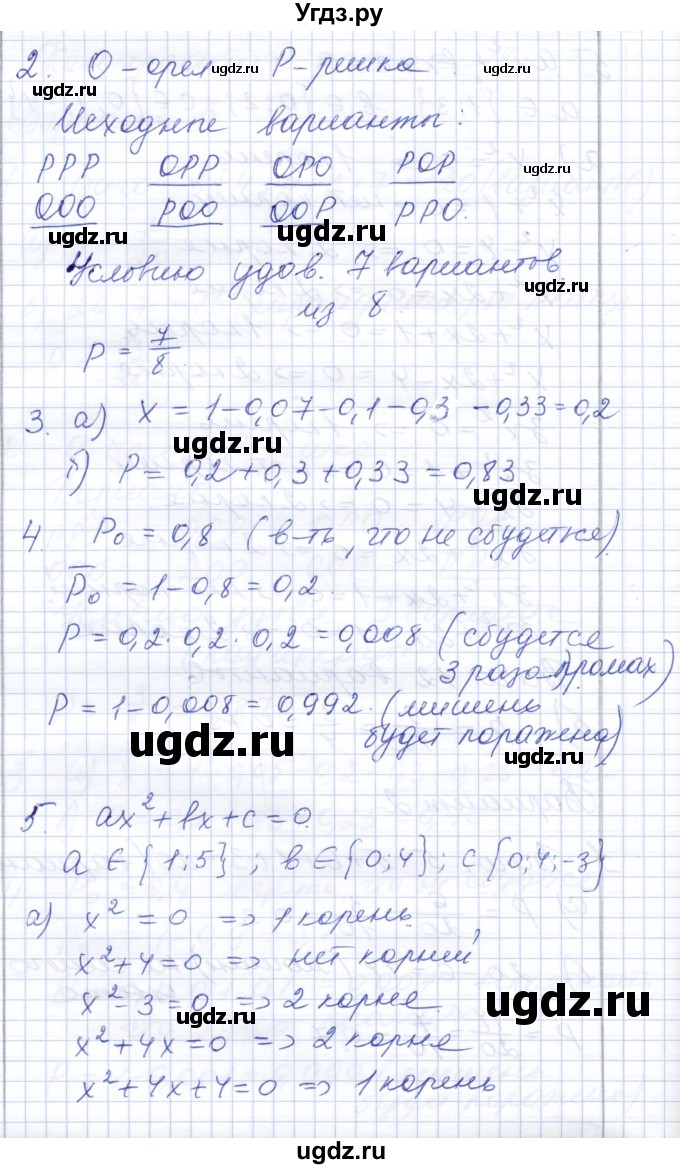 Угдз.ру
2. О - орел Р - решка
Исходные варианты:
РРР ОРР ОРО РОР
ООО РОО ООР РРО.
Условию удов. 7 вариантов
из 8.
P = 7/8
3. а) x = 1 - 0,07 - 0,1 - 0,3 - 0,33 = 0,2
б) P = 0,2 + 0,3 + 0,33 = 0,83
4. P₀ = 0,8 (в-ть, что не сбудется)
P̅₀ = 1 - 0,8 = 0,2.
P = 0,2 · 0,2 · 0,2 = 0,008 (сбудется
3 раза промах)
P = 1 - 0,008 = 0,992. (мишень
будет поражена)
5. ax² + bx + c = 0.
a ∈ {1; 5} ; b ∈ {0; 4} ; c {0; 4; -3}
а) x² = 0 => 1 корень.
x² + 4 = 0 => нет корней
x² - 3 = 0 => 2 корня.
x² + 4x = 0 => 2 корня
x² + 4x + 4 = 0 => 1 корень
ugdz.ru
ugdz.ru
ugdz.ru
ugdz.ru
ugdz.ru
ugdz.ru
ugdz.ru
ugdz.ru
ugdz.ru
ugdz.ru
ugdz.ru
ugdz.ru
ugdz.ru
ugdz.ru